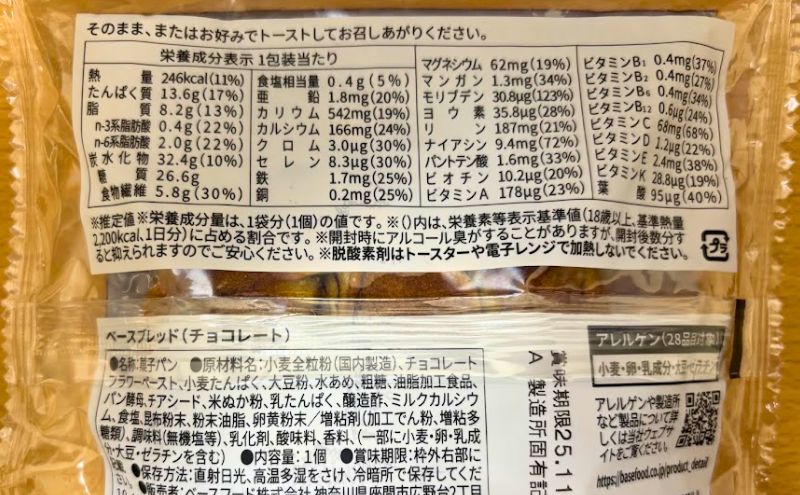 そのまま、またはお好みでトーストしてお召しあがりください。
栄養成分表示 1包装当たり
熱量 246kcal(11%)
たんぱく質 13.6g(17%)
脂質 8.2g(13%)
n-3系脂肪酸 0.4g(22%)
n-6系脂肪酸 2.0g(22%)
炭水化物 32.4g(10%)
糖質 26.6g
食物繊維 5.8g(30%)
食塩相当量 0.4g(5%)
亜鉛 1.8mg(20%)
カリウム 542mg(19%)
カルシウム 166mg(24%)
クロム 3.0μg(30%)
セレン 8.3μg(30%)
鉄 1.7mg(25%)
銅 0.2mg(25%)
マグネシウム 62mg(19%)
マンガン 1.3mg(34%)
モリブデン 30.8μg(123%)
ヨウ素 35.8μg(28%)
リン 187mg(21%)
ナイアシン 9.4mg(72%)
パントテン酸 1.6mg(33%)
ビオチン 10.2μg(20%)
ビタミンA 178μg(23%)
ビタミンB1 0.4mg(37%)
ビタミンB2 0.4mg(27%)
ビタミンB6 0.4mg(34%)
ビタミンB12 0.6μg(24%)
ビタミンC 68mg(68%)
ビタミンD 1.2μg(22%)
ビタミンE 2.4mg(38%)
ビタミンK 28.8μg(19%)
葉酸 95μg(40%)
※推定値 ※栄養成分量は、1袋分(1個)の値です。※()内は、栄養素等表示基準値(18歳以上、基準熱量
2,200kcal、1日分)に占める割合です。※開封時にアルコール臭がすることがありますが、開封後数分す
ると抑えられますのでご安心ください。※脱酸素剤はトースターや電子レンジで加熱しないでください。
プラ
ベースブレッド(チョコレート)
●名称:菓子パン ●原材料名:小麦全粒粉(国内製造)、チョコレート
フラワーペースト、小麦たんぱく、大豆粉、水あめ、粗糖、油脂加工食品、
パン酵母、チアシード、米ぬか粉、乳たんぱく、醸造酢、ミルクカルシウ
ム、食塩、昆布粉末、粉末油脂、卵黄粉末/増粘剤(加工でん粉、増粘多
糖類)、調味料(無機塩等)、乳化剤、酸味料、香料、(一部に小麦・卵・乳成
分・大豆・ゼラチンを含む) ●内容量:1個 ●賞味期限:枠外右部に
●保存方法:直射日光、高温多湿をさけ、冷暗所で保存してくだ
●販売者:ベースフード株式会社 神奈川県座間市広野台2丁目
賞味期限25.11
A 製造所固有記
アレルゲン(28品目対象)
小麦・卵・乳成分・大豆・ゼラチン
アレルゲンや製造所
など製品について詳
しくは当社ウェブサ
イトをご覧ください。
https://basefood.co.jp/product_detail